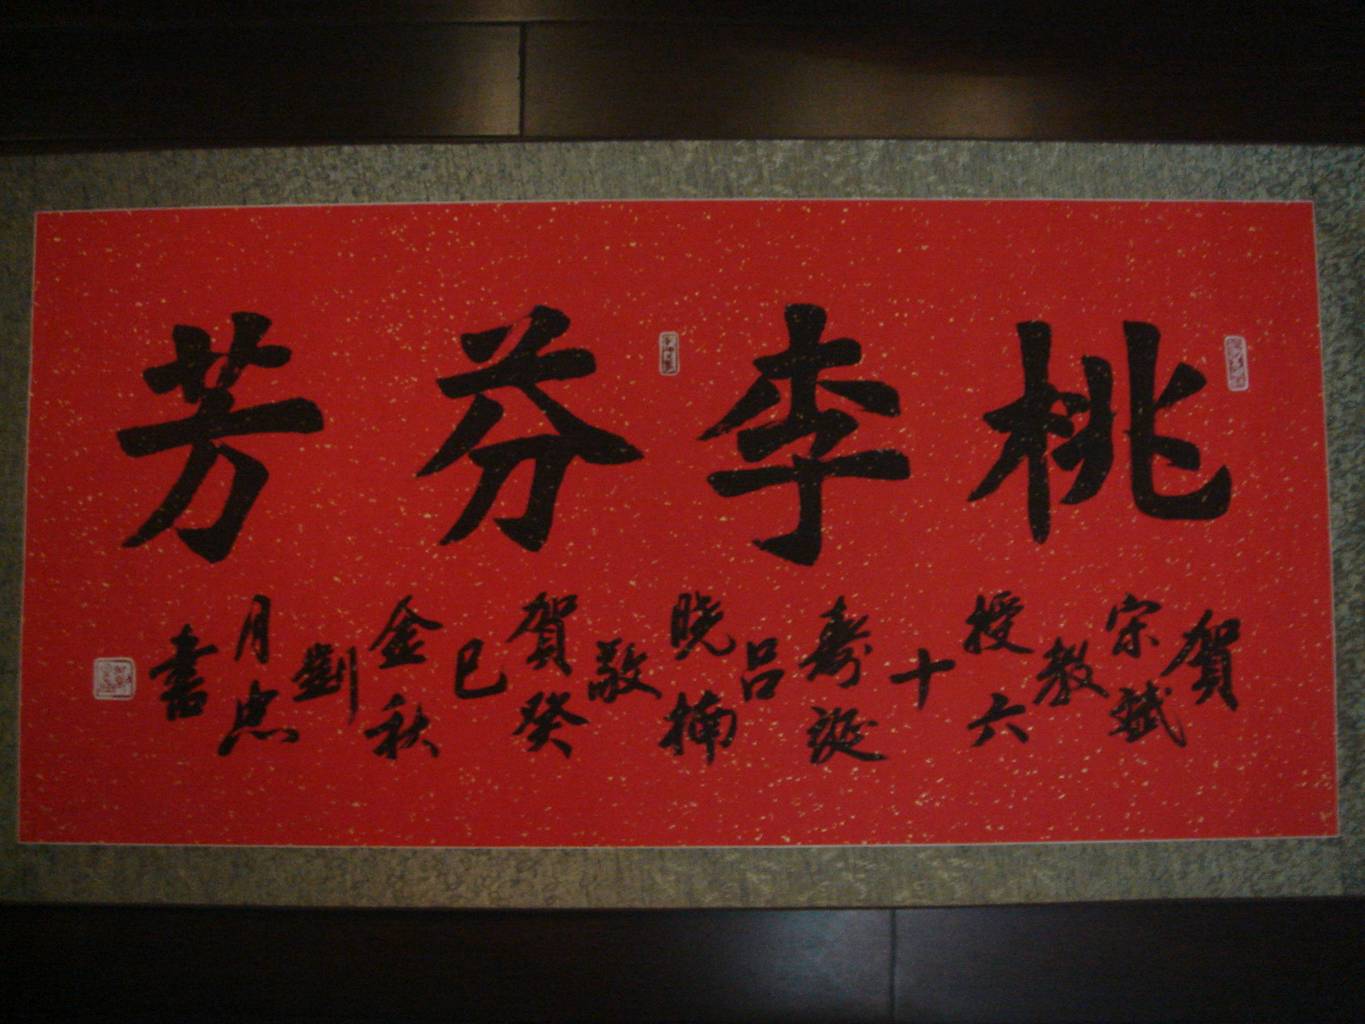 桃李芬芳
賀
宗斌
教
授六
十
寿誕
吕
晓楠
敬
賀癸
巳
金秋
劉
月忠
書